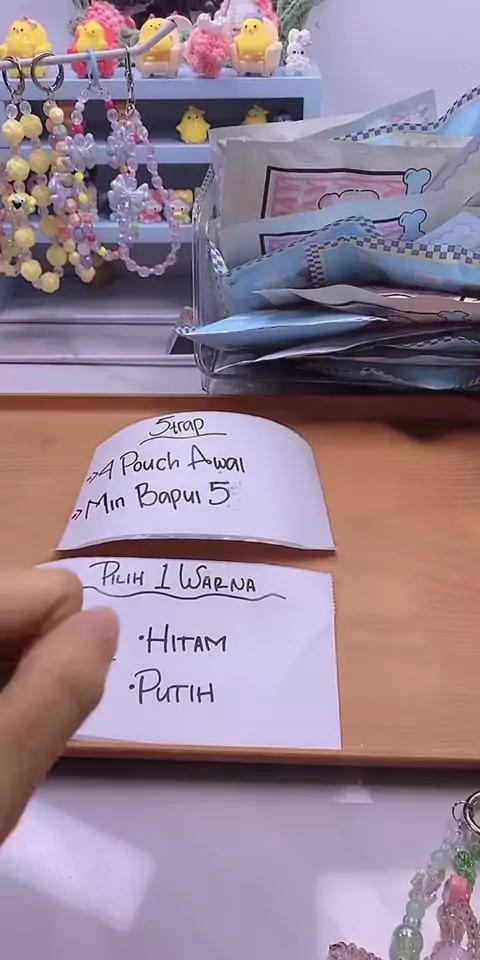 Strap
»4 Pouch Awal
»Min Bapul 5
PILIH 1 WARNA
•HITAM
•PUTIH